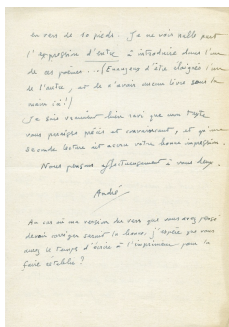 en vers de 10 pieds. Je ne vois nulle part
l'expression d'entre à introduire dans l'un
de ces poèmes... (Ennuyeux d'être éloignés l'un
de l'autre, et de n'avoir aucun livre sous la
main ici!)
Je suis vraiment bien ravi que mon texte
vous paraisse précis et convaincant, et qu'une
seconde lecture ait accru votre bonne impression.
Nous pensons affectueusement à vous deux.
André
Au cas où ma version du vers que vous avez pensé
devoir corriger serait la bonne, j'espère que vous
avez le temps d'écrire à l'imprimeur pour la
faire rétablir?